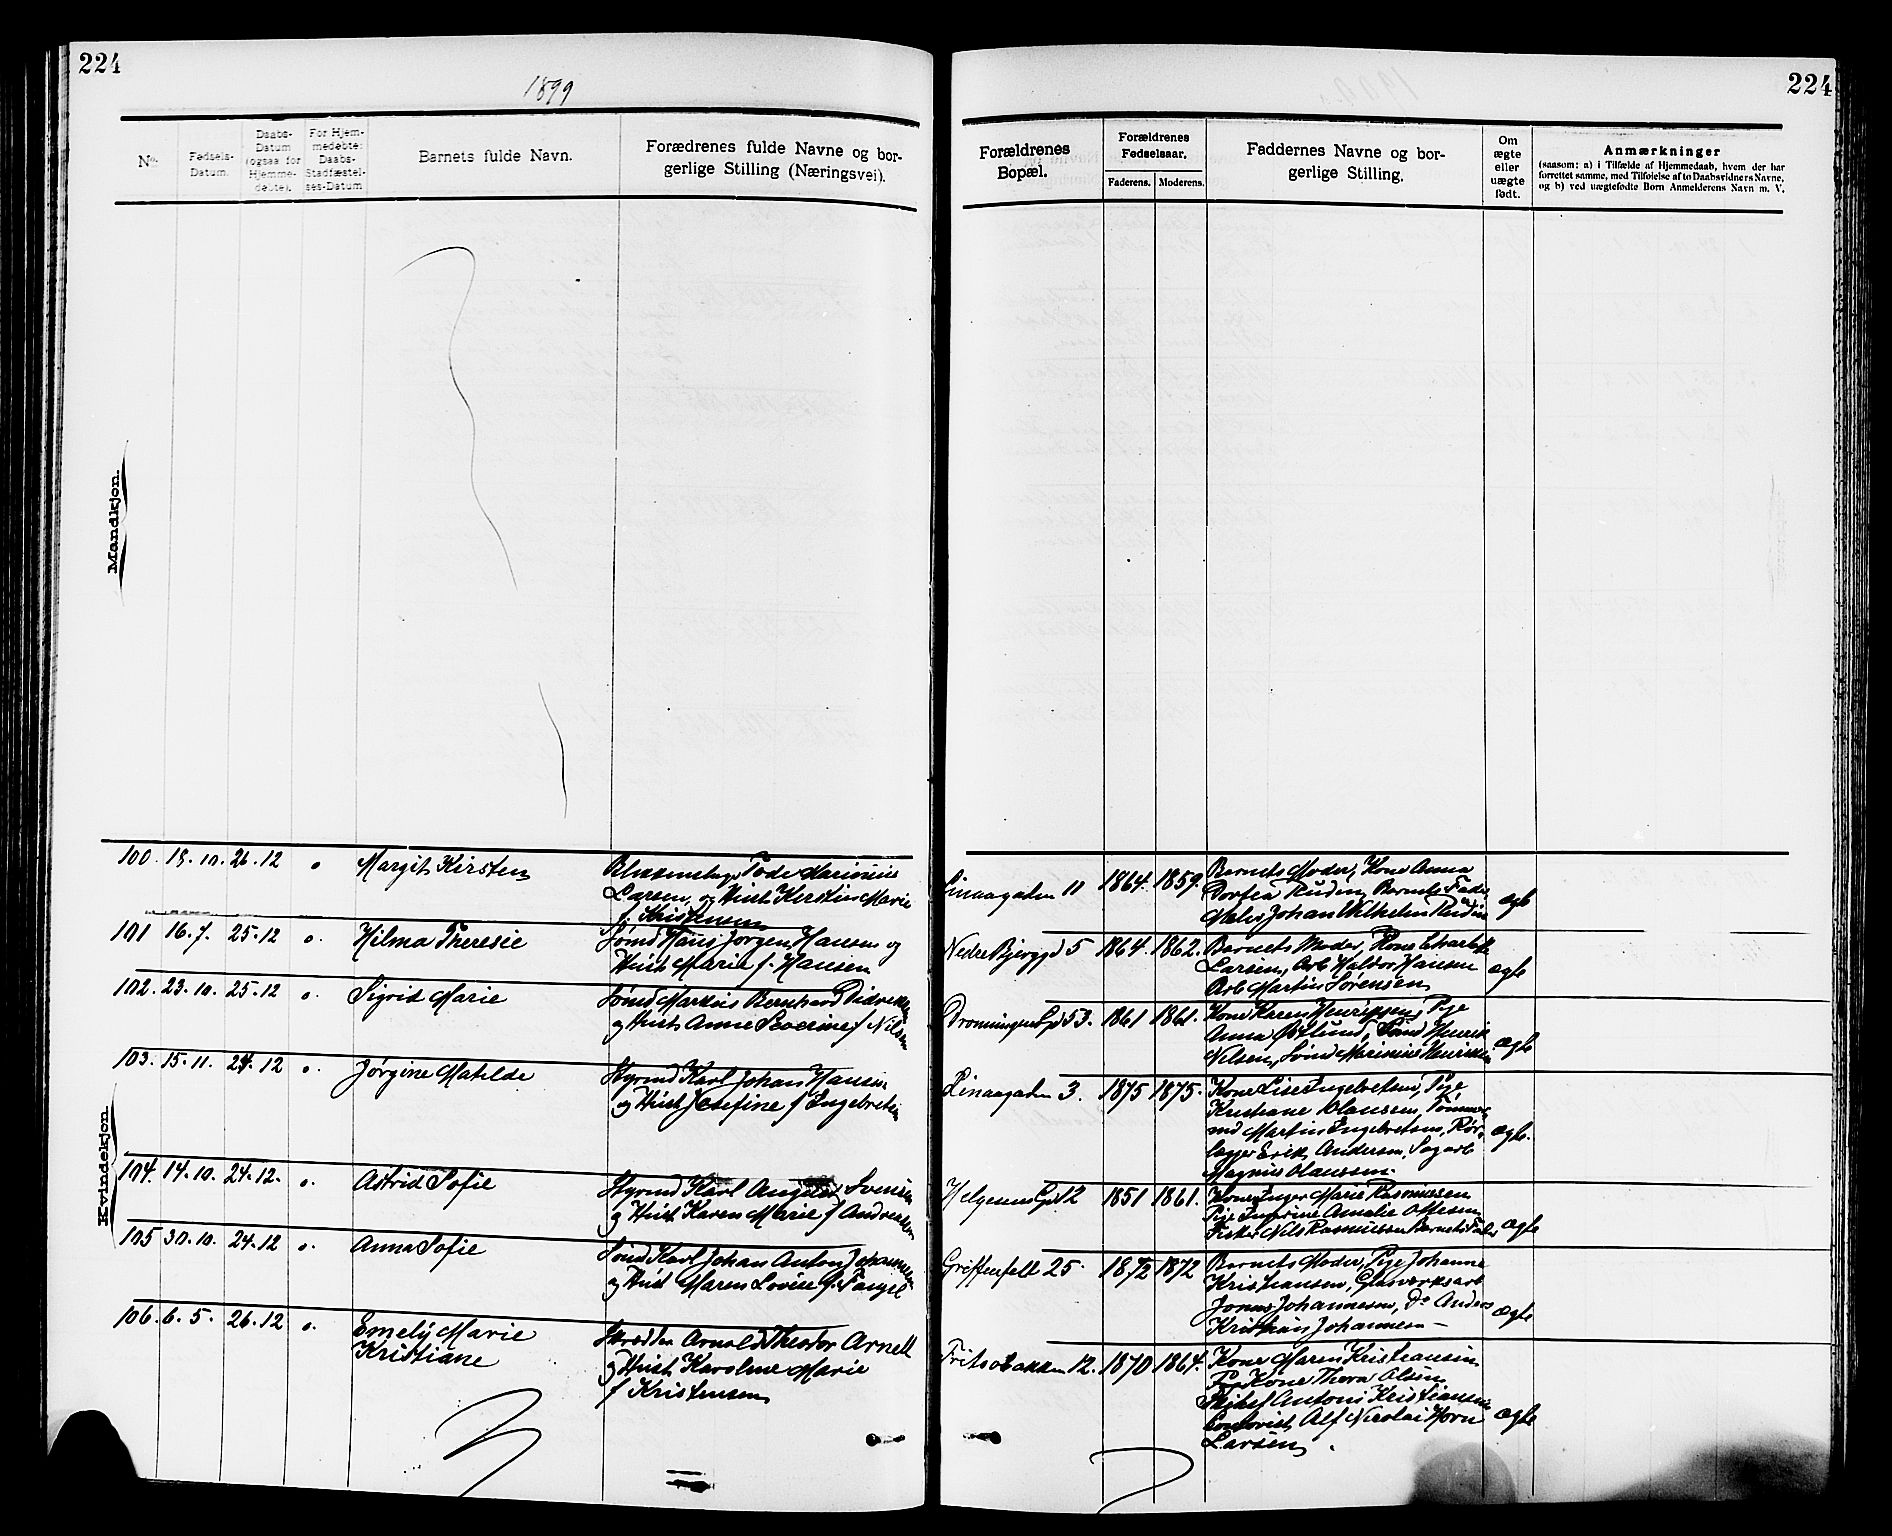 224
1899
No.
Fødsels-
Datum.
Daabs-
Datum
(ogsaa for
Hjemme-
døbte).
For Hjem-
medøbte:
Daabs-
Stadfæstel-
ses-Datum
Barnets fulde Navn.
Forædrenes fulde Navne og bor-
gerlige Stilling (Næringsvei).
Mandkjøn.
Kvindekjøn
100. 18. 10. 26. 12 o Margit Kirsten
Larsen og Hust Kirstine Marie
f. Kristensen
101 16. 7. 25. 12 o. Hilma Theresie
Sømd Hans Jørgen Hansen og
Hust Marie f. Hansen
102. 23. 10. 25. 12 o. Sigrid Marie
Sømd Markus Bernhard Didriksen
og Hust Anne Severine f Nilsen
103. 15. 11. 24. 12 o. Jørgine Matilde
Styrmd Karl Johan Hansen
og Hust Josefine f Engebretsen
104. 14. 10. 24. 12. o. Astrid Sofie
Styrmd Karl August Svensen
og Hust Karen Marie f Andreassen
105 30. 10. 24. 12 o. Anna Sofie
Sømd Karl Johan Anton Johannesen
og Hust Maren Lovise f.
106. 6. 5. 26. 12 o. Emely Marie
Kristiane
Skrædder Arnold Theodor Arnell
og Hust Karoline Marie
f Kristensen
224
Forældrenes
Bopæl.
Forældrenes
Fødselsaar.
Faderens. Moderens.
Faddernes Navne og bor-
gerlige Stilling.
Om
ægte
eller
uægte
født.
Anmærkninger
(saasom: a) i Tilfælde af Hjemmedaab, hvem der har
forrettet samme, med Tilføielse af to Daabsvidners Navne,
og b) ved uægtefødte Børn Anmelderens Navn m. V.
Linaagaden 11 1864. 1859. Barnets Moder, Kone Anna
Dorfea Rudin, Barnets Fader,
Maler Johan Wilhelm Rudin ægte
Nedre Bjerggd 5 1864. 1862. Barnets Moder, Kone
Larsen, Arb Haldor Hansen
Arb Martin Sørensen ægte
Dronningens Gd 53. 1861 1861. Kone Karen Henriksen, Pige
Anna Østlund, Sømd Henrik
Nilsen, Sømd Marinius Henriksen ægte
Linaagaden 3. 1875 1875. Kone Lise Engebretsen, Pige
Kristiane Olaussen, Tømmer-
md Martin Engebretsen, Rør-
lægger Erik Andersen, Sagarb
Magnus Olaussen. ægte.
Helgesens Gd 12 1851 1861. Kone Inger Marie Rasmussen
Pige Ingerine Amalie Ottesen
Fisker Nils Rasmussen Barnets Fader ægte
Griffenfelt 25 1872 1872 Barnets Moder, Pige Johanne
Kristiansen, Glasverksarb
Jonas Johannesen, Do Anders
Kristian Johannesen ægte
Fritzøbakken 12. 1870 1864. Kone Maren Kristiansen
Kone Thora Olsen
Antoni Kristiansen
Alf Nicolai Horn
Larsen ægte